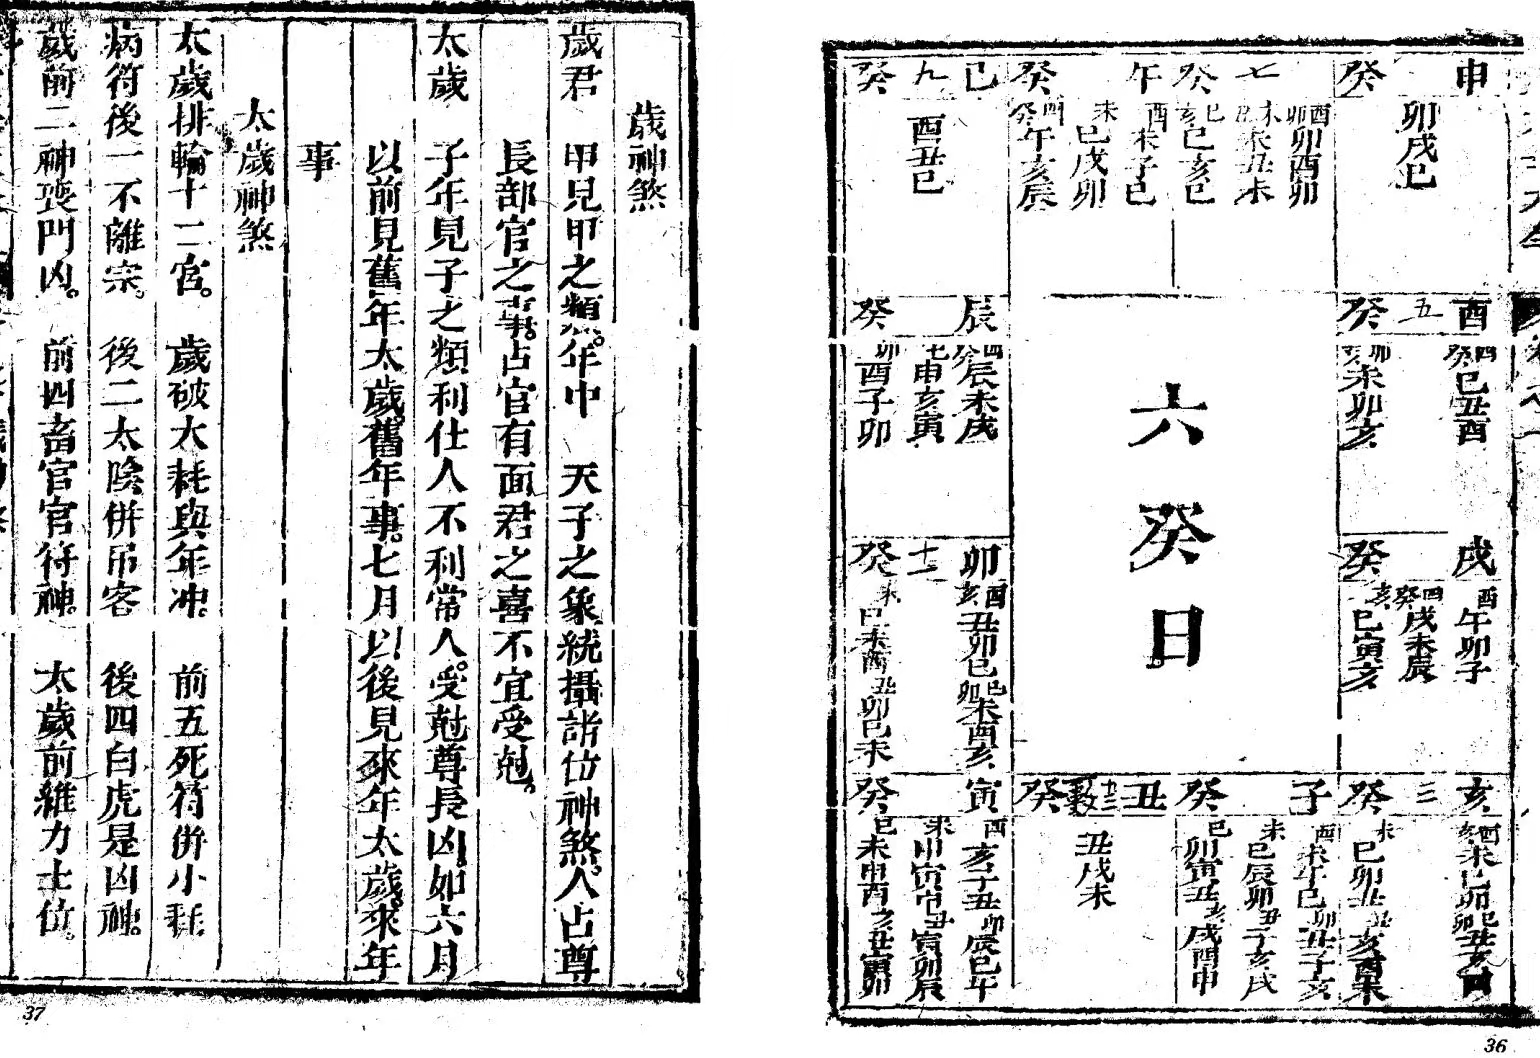 申
癸
卯戌巳
七
癸
酉卯卯酉卯
未丑未丑未
巳亥巳亥巳
午
癸
酉未子巳
未巳戌卯
酉癸午亥辰
巳
九
癸
酉丑巳
酉
五
癸
四癸巳丑酉
卯亥未卯亥
辰
癸
四癸辰未戌
七申亥寅
卯酉子卯
六癸日
戌
癸
酉午卯子
四癸戌未辰
亥巳寅亥
卯
十一
癸
酉亥丑卯巳
巳卯未酉亥
未巳未酉
丑卯巳未
亥
三
癸
未巳卯丑
丑亥酉未
子
癸
酉未午巳
卯丑子亥
未巳辰卯
丑子亥戌
巳卯寅丑
亥戌酉申
丑
癸
丑戌未
寅
癸
酉亥子丑
卯辰巳午
丑寅卯辰
巳未申酉
亥丑寅卯
36
歲神煞
歲君 甲見甲之類。年中 天子之象統攝諸位神煞。人占尊
長部官之事。占官有面君之喜不宜受尅。
太歲 子年見子之類利仕人不利常人。受尅尊長凶如六月
以前見舊年太歲。舊年事。七月以後見來年太歲。來年
事
太歲神煞
太歲排輪十二宮。 歲破大耗與年冲。 前五死符併小耗
病符後一不離宗。 後二太陰併吊客 後四白虎是凶神。
歲前二神喪門凶。 前四畜官官符神。 太歲前維力士位。
37